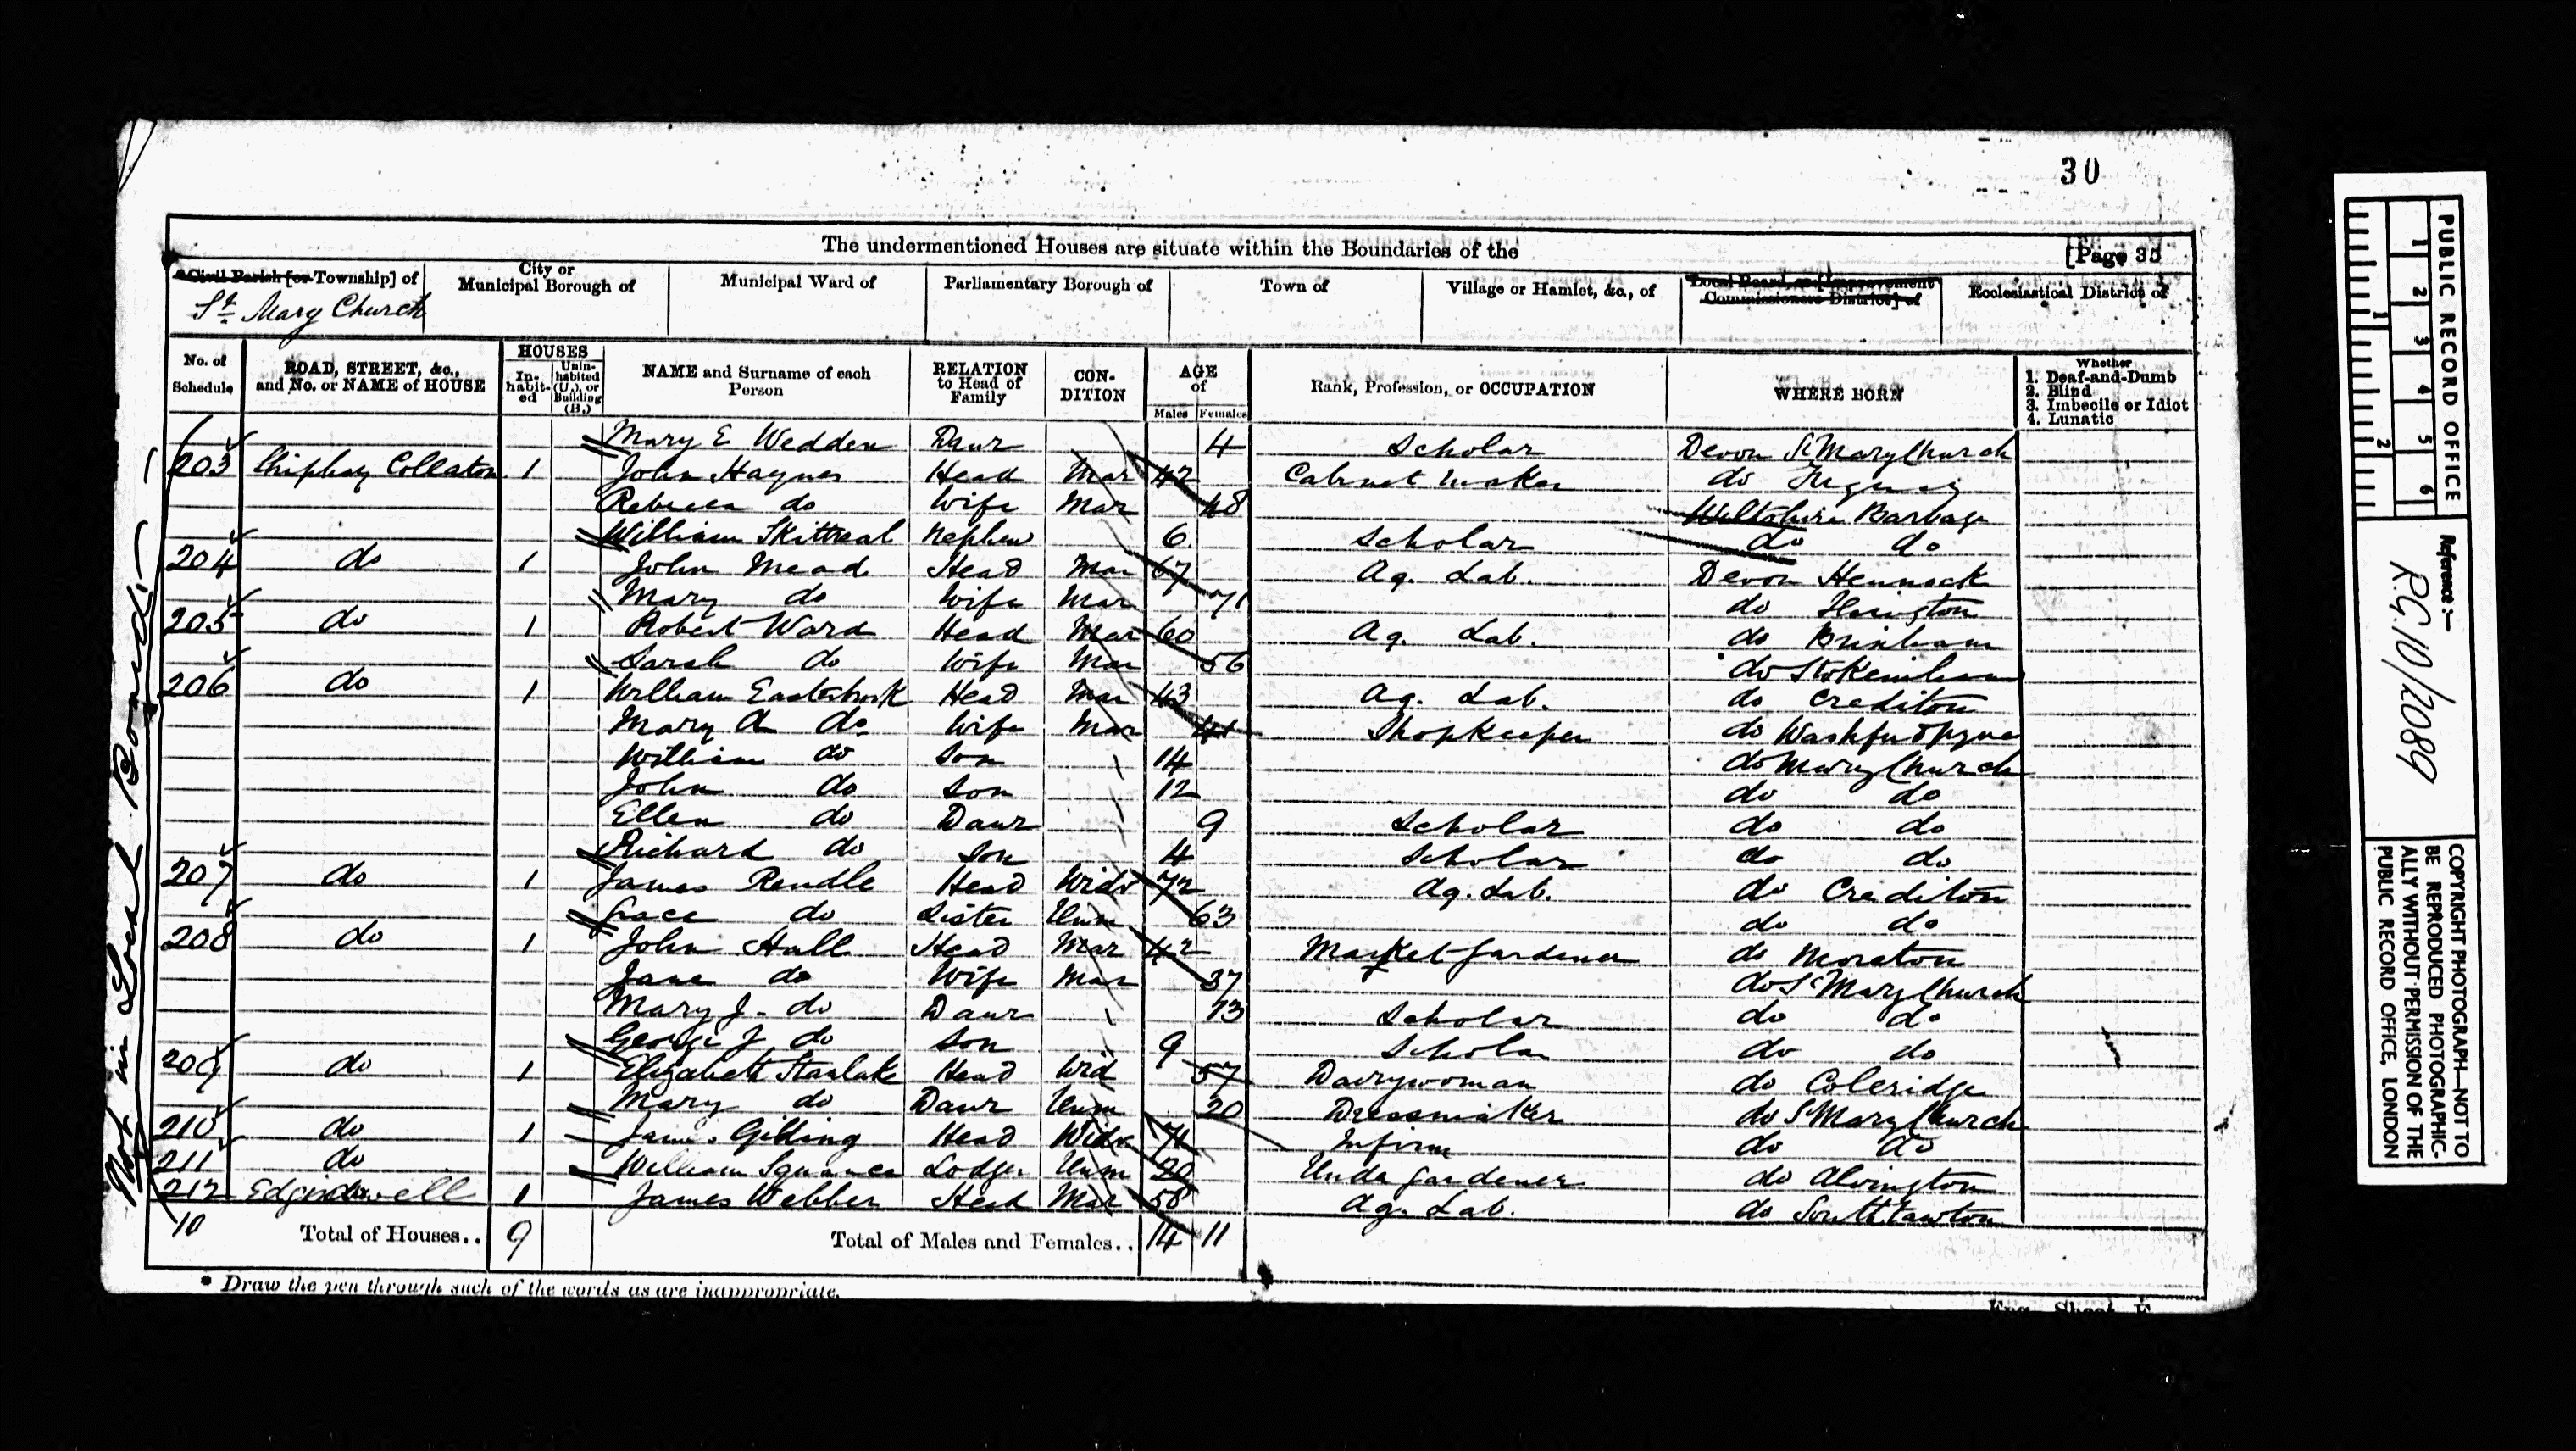 30
The undermentioned Houses are situate within the Boundaries of the [Page 35
*Civil Parish [or Township] of City or Municipal Borough of Municipal Ward of Parliamentary Borough of Town of Village or Hamlet, &c., of Local Board, or [Improvement Commissioners District] of Ecclesiastical District of
St. Mary Church
No. of Schedule ROAD, STREET, &c., and No. or NAME of HOUSE HOUSES Inhabited Uninhabited (U.), or Building (B.) NAME and Surname of each Person RELATION to Head of Family CONDITION AGE of Males Females Rank, Profession, or OCCUPATION WHERE BORN Whether 1. Deaf-and-Dumb 2. Blind 3. Imbecile or Idiot 4. Lunatic
Mary E Wedden Daur 4 Scholar Devon St Mary Church
203 Chiphay Collaton 1 John Haynes Head Mar 42 Cabinet Maker do
Rebecca do Wife Mar 48 Wiltshire Barbage
William Skittreal Nephew 6 Scholar do do
204 do 1 John Mead Head Mar 67 Ag. Lab. Devon Hennock
Mary do Wife Mar 71 do Ilsington
205 do 1 Robert Ward Head Mar 60 Ag. Lab. do Brixham
Sarah do Wife Mar 56 do Stokeinham
206 do 1 William Easterbrook Head Mar 43 Ag. Lab. do Crediton
Mary A do Wife Mar 41 Shopkeeper do Washfordpyne
William do Son 14 do Mary Church
John do Son 12 do do
Ellen do Daur 9 Scholar do do
Richard do Son 4 Scholar do do
207 do 1 James Rendle Head Widr 72 Ag. Lab. do Crediton
Grace do Sister Unm 63 do do
208 do 1 John Hall Head Mar 42 Market Gardener do Moreton
Jane do Wife Mar 37 do St Mary Church
Mary J. do Daur 13 Scholar do do
George J do Son 9 Scholar do do
209 do 1 Elizabeth Stanlake Head Wid 57 Dairywoman do Coleridge
Mary do Daur Unm 20 Dressmaker do St Mary Church
210 do 1 James Gilling Head Widr 71 Infirm do do
211 do William Squances Lodger Unm 20 Under Gardener do Alvington
212 Edginswell 1 James Webber Head Mar 58 Ag. Lab. do South Tawton
10 Total of Houses.. 9 Total of Males and Females.. 14 11
* Draw the pen through such of the words as are inappropriate.
Eng.—Sheet F
Not in Local Board
PUBLIC RECORD OFFICE
1 2 3 4 5 6
1 2
Reference :—
RG.10/2089
COPYRIGHT PHOTOGRAPH—NOT TO BE REPRODUCED PHOTOGRAPHICALLY WITHOUT PERMISSION OF THE PUBLIC RECORD OFFICE, LONDON